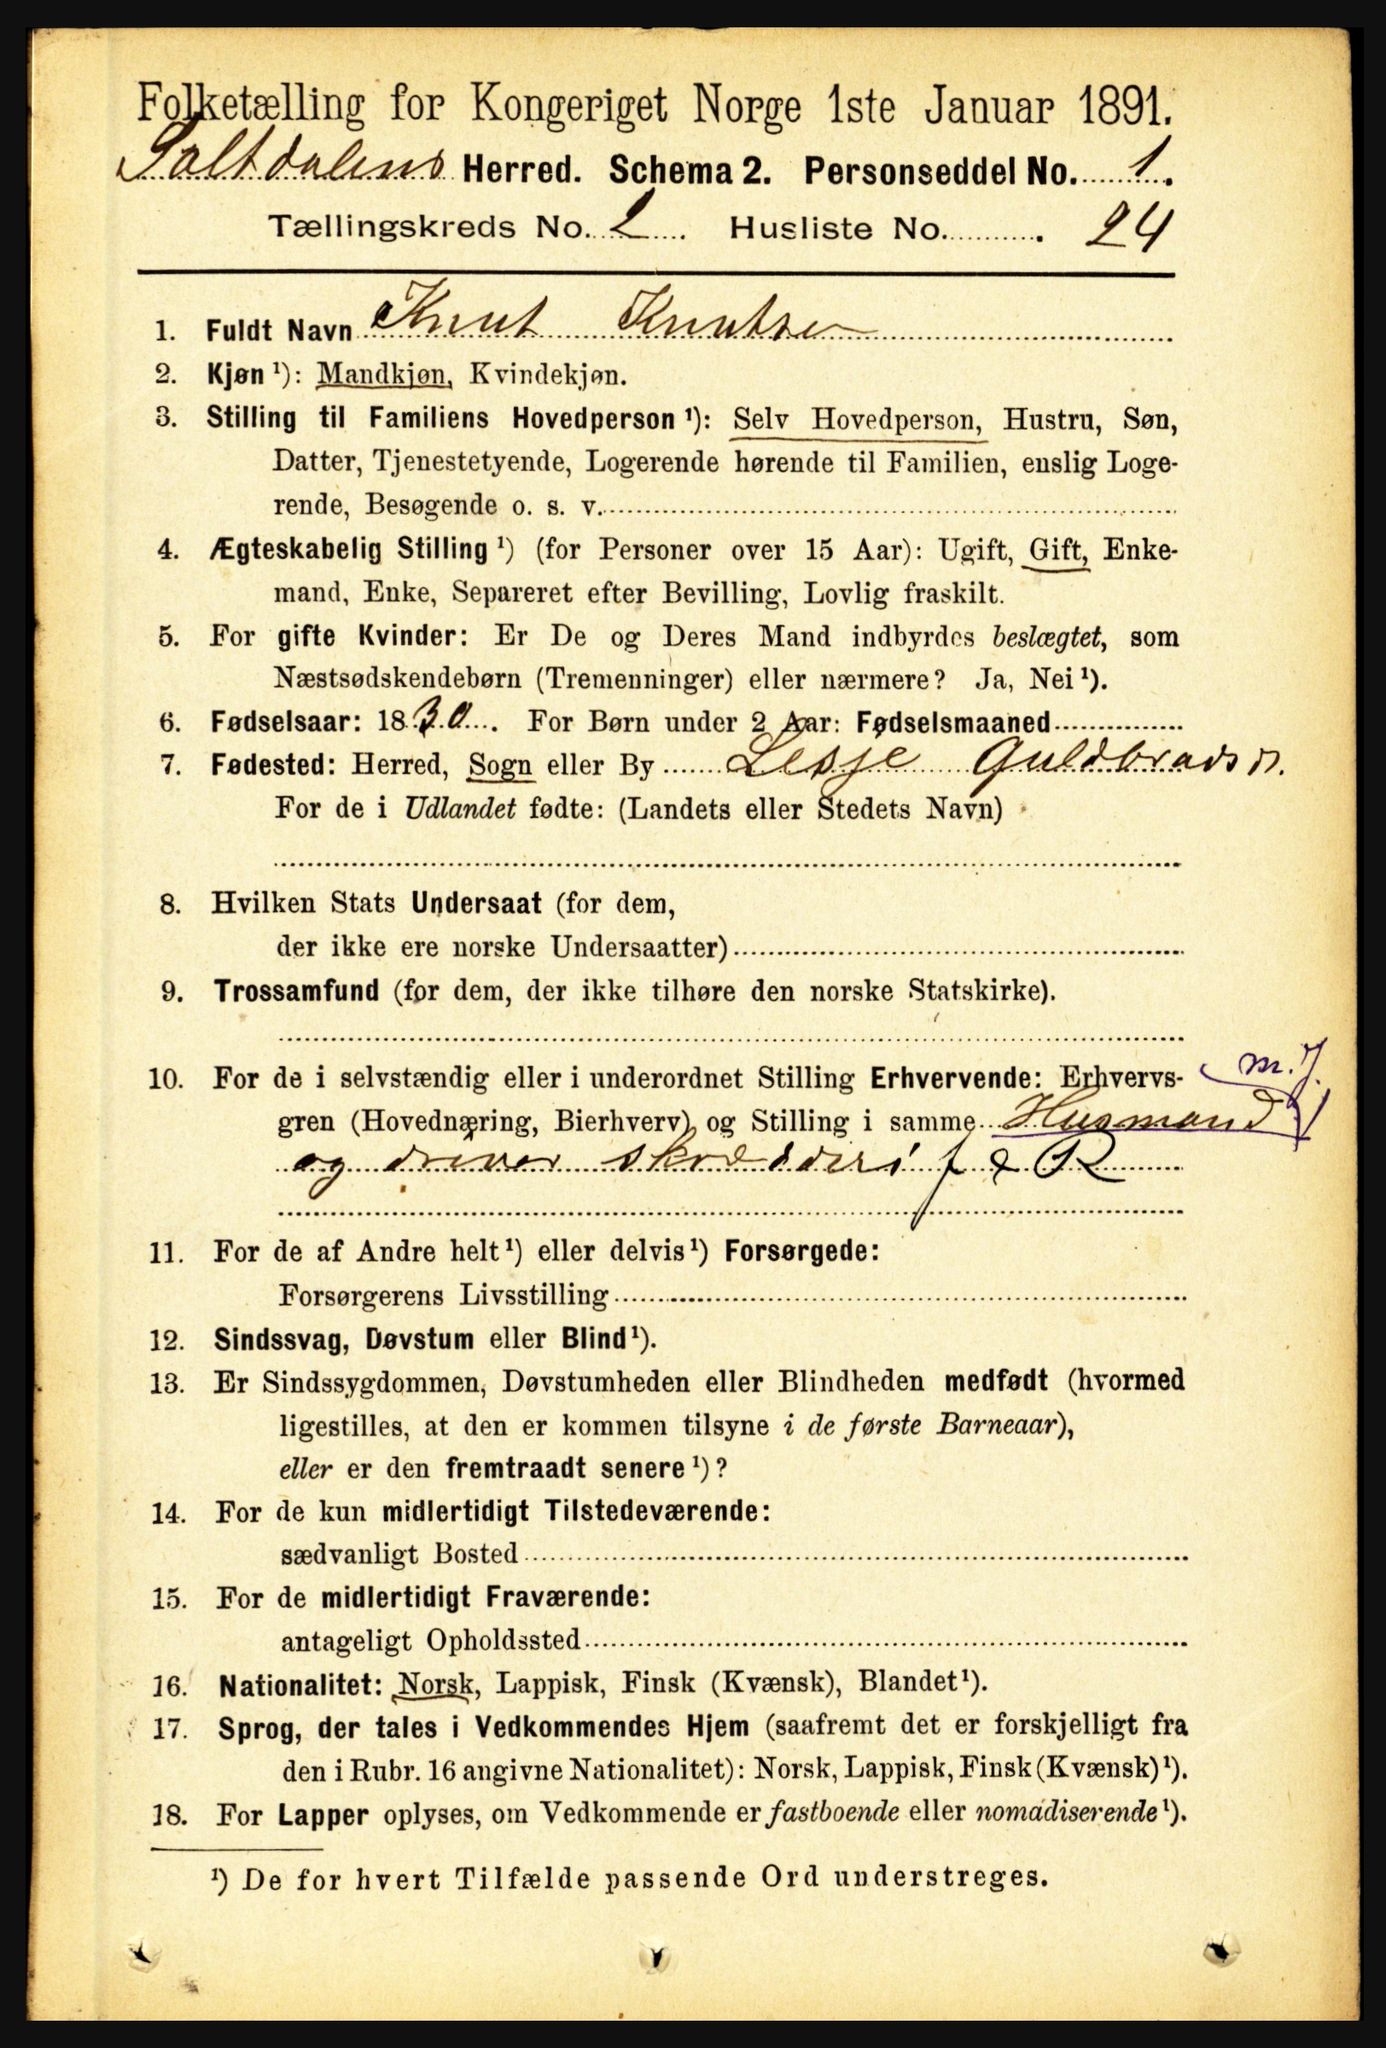 Folketælling for Kongeriget Norge 1ste Januar 1891.
Saltdalens Herred. Schema 2. Personseddel No. 1.
Tællingskreds No. 2. Husliste No. 24
1. Fuldt Navn Knut Knutsen
2. Kjøn ¹): Mandkjøn, Kvindekjøn.
3. Stilling til Familiens Hovedperson ¹): Selv Hovedperson, Hustru, Søn,
Datter, Tjenestetyende, Logerende hørende til Familien, enslig Loge-
rende, Besøgende o. s. v.
4. Ægteskabelig Stilling ¹) (for Personer over 15 Aar): Ugift, Gift, Enke-
mand, Enke, Separeret efter Bevilling, Lovlig fraskilt.
5. For gifte Kvinder: Er De og Deres Mand indbyrdes beslægtet, som
Næstsødskendebørn (Tremenninger) eller nærmere? Ja, Nei ¹).
6. Fødselsaar: 1830. For Børn under 2 Aar: Fødselsmaaned
7. Fødested: Herred, Sogn eller By Lesje Guldbrads d.
For de i Udlandet fødte: (Landets eller Stedets Navn)
8. Hvilken Stats Undersaat (for dem,
der ikke ere norske Undersaatter)
9. Trossamfund (for dem, der ikke tilhøre den norske Statskirke).
m. J.
10. For de i selvstændig eller i underordnet Stilling Erhvervende: Erhvervs-
gren (Hovednæring, Bierhverv) og Stilling i samme Husmand
og driver skrædderi f & R
11. For de af Andre helt ¹) eller delvis ¹) Forsørgede:
Forsørgerens Livsstilling
12. Sindssvag, Døvstum eller Blind ¹).
13. Er Sindssygdommen, Døvstumheden eller Blindheden medfødt (hvormed
ligestilles, at den er kommen tilsyne i de første Barneaar),
eller er den fremtraadt senere ¹)?
14. For de kun midlertidigt Tilstedeværende:
sædvanligt Bosted
15. For de midlertidigt Fraværende:
antageligt Opholdssted
16. Nationalitet: Norsk, Lappisk, Finsk (Kvænsk), Blandet ¹).
17. Sprog, der tales i Vedkommendes Hjem (saafremt det er forskjelligt fra
den i Rubr. 16 angivne Nationalitet): Norsk, Lappisk, Finsk (Kvænsk) ¹).
18. For Lapper oplyses, om Vedkommende er fastboende eller nomadiserende ¹).
¹) De for hvert Tilfælde passende Ord understreges.